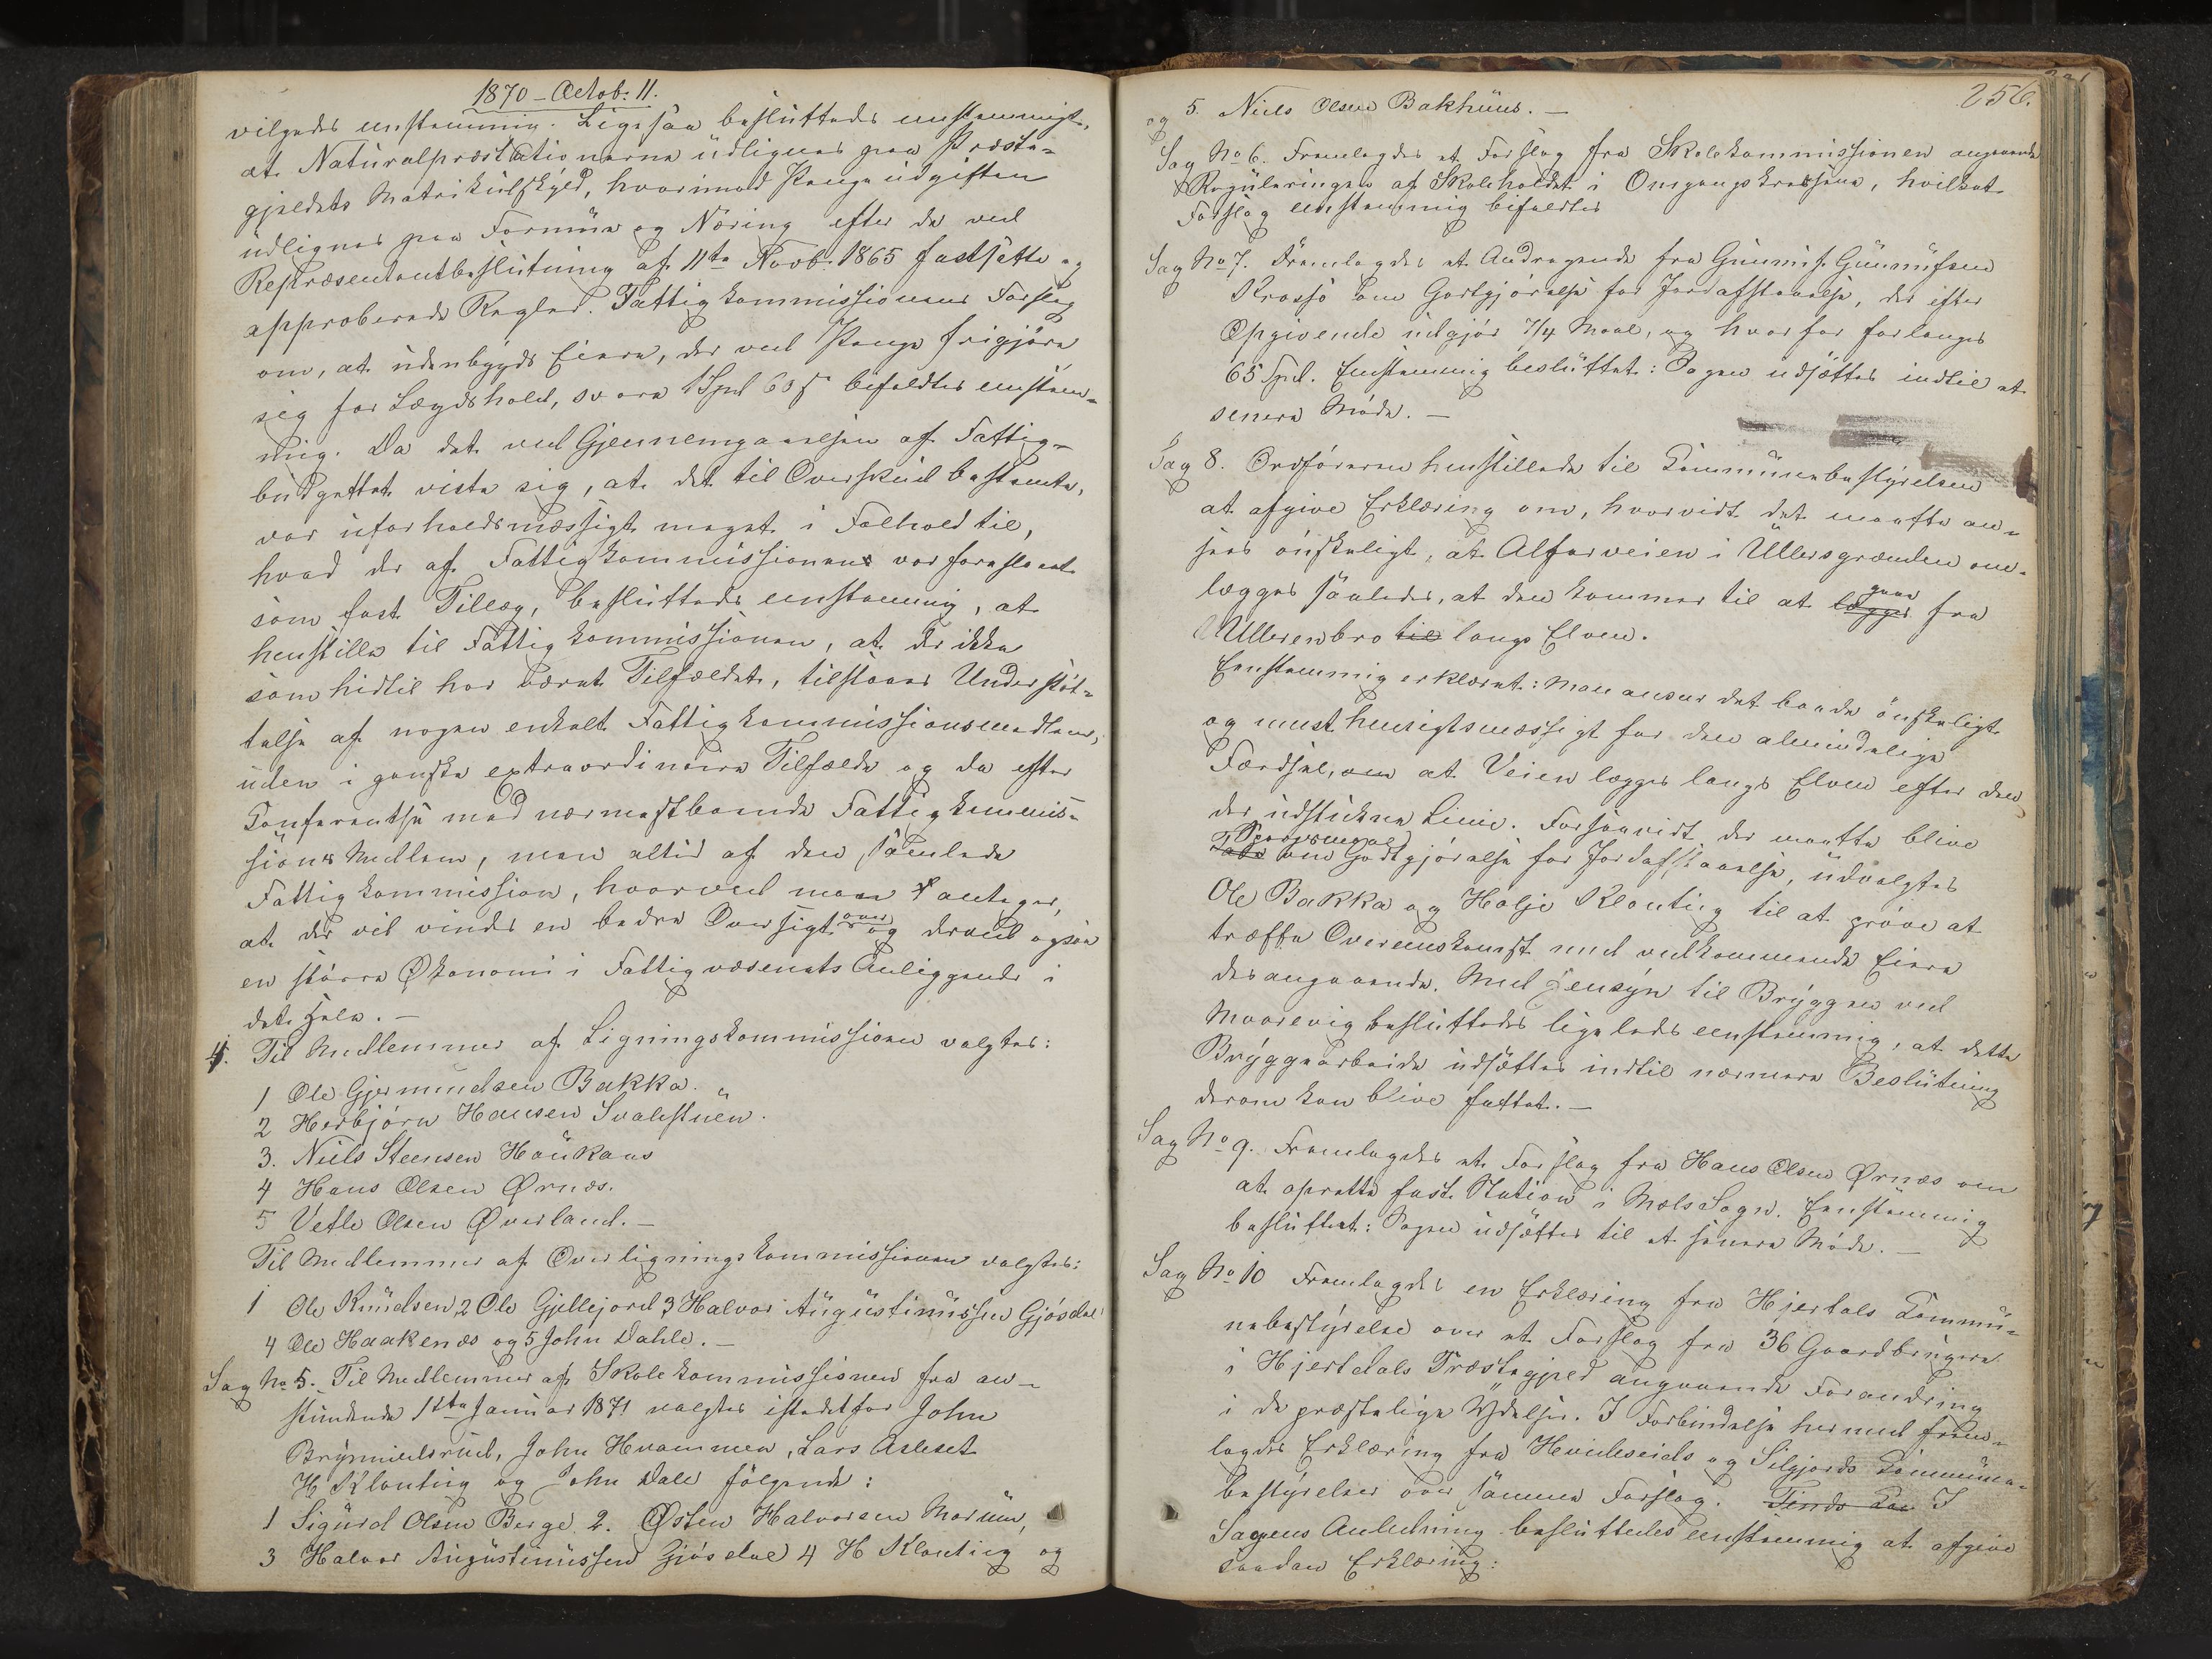 1870 - Octob: 11.
vilgedes eenstemmig. Ligesaa besluttedes eenstemmigt,
at Naturalpræstationerne udlignes paa Præste-
gjeldets Matrikulskyld, hvorimod Pengeudgiften
udlignes paa Formue og Næring efter de ved
Repræsentantbeslutning af 11te Novb. 1865 fastsatte og
approberede Regler. Fattigkommissionens Forslag
om, at udenbygds Eiere, der ved Penge frigjöre
sig for Lægdshold, svare 1 Spd 60 ß bifaldtes eenstem-
mig. Da det ved Gjennemgaaelsen af Fattig-
budgettet viste sig, at det til Overskud bestemte,
var uforholdsmæssigt meget i Forhold til,
hvad der af Fattigkommissionen var foreslaaet
som fast Tillæg, besluttedes eenstemmig, at
henstille til Fattigkommissionen, at der ikke
som hidtil har været Tilfældet, tilstaaes Understöt-
telse af nogen enkelt Fattigkommissionsmedlem,
uden i ganske extraordinaire Tilfælde og da efter
Conferentse med nærmestboende Fattigkommis-
sions Medlem, men altid af den samlede
Fattigkommission, hvorved man antager,
at der vil vindes en bedre Oversigt over og derved ogsaa
en större Økonomi i Fattigvæsenets Anliggende i
det Hele. -
4. Til Medlemmer af Ligningskommissionen valgtes:
1 Ole Gjermundsen Bakka.
2 Herbjörn Hansen Svalestuen.
3. Niels Steensen Haukaas
4 Hans Olsen Ørnæs.
5 Vetle Olsen Øverland. -
Til Medlemmer af Overligningskommissionen valgtes:
1 Ole Knudsen 2 Ole Gjellejord 3 Halvor Augustinussen Gjösdal
4 Ole Haakenæs og 5 John Dahle. -
Sag No 5. Til Medlemmer af Skolekommissionen fra an-
stundende 1ste Januar 1871 valgtes istedetfor John
Brynnildsrud, John Hvammen, Lars Asleset
H. Klonting og John Dale fölgende:
1 Sigurd Olsen Berge 2. Østen Halvorsen Marum,
3 Halvor Augustinussen Gjösdal 4 H Klonting og
256.
og 5. Niels Olsen Bakhuus. -
Sag No 6. Fremlagdes et Forslag fra Skolekommissionen angaaende
Reguleringen af Skoleholdet i Omgangskredsene, hvilket
Forslag eenstemmig bifaldtes
Sag No 7. Fremlagdes et Andragende fra Gunnuf Gunnufsen
Krossö om Godtgjörelse for Jordafstaaelse, der efter
Opgivende udgjör 7/4 Maal, og hvorfor forlanges
65 Spd. Eenstemmig besluttet: Sagen udsættes indtil et
senere Möde. -
Sag 8. Ordföreren henstillede til Communebestyrelsen
at afgive Erklæring om, hvorvidt det maatte an-
sees önskeligt, at Alfarveien i Ullersgrænden om-
lægges saaledes, at den kommer til at lægges gaae fra
Ullerenbro til langs Elven.
Eenstemmig erklæret: Man anseer det baade önskeligt
og meest hensigtsmæssigt for den almindelige
Færdsel, om at Veien lægges langs Elven efter den
der udstukne Linie. Forsaavidt der maatte blive
Tale Spörgsmaal om Godtgjörelse for Jordafstaaelse, udvalgtes
Ole Bakka og Hölje Klonting til at pröve at
træffe Overenskomst med vedkommende Eiere
desangaaende. Med Hensyn til Bryggen ved
Maarevig besluttedes ligeledes eenstemmig, at dette
Bryggearbeide udsættes indtil nærmere Beslutning
derom kan blive fattet. -
Sag No 9. Fremlagdes et Forslag fra Hans Olsen Ørnæs om
at oprette fast Station i Mæls Sogn. Eenstemmig
besluttet: Sagen udsættes til et senere Möde. -
Sag No 10 Fremlagdes en Erklæring fra Hjertdals Commu-
nebestyrelse over et Forslag fra 36 Gaardbrugere
i Hjertdals Præstegjeld angaaende Forandring
i de præstelige Ydelser. I Forbindelse hermed frem-
lagdes Erklæring fra Hvideseids og Silgjords Commune-
bestyrelser over samme Forslag. Tinds Com I
Sagens Anledning besluttedes eenstemmig at afgive
saadan Erklæring: